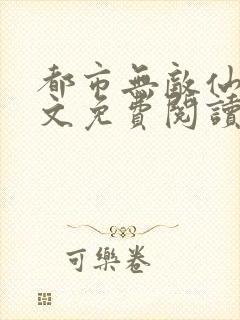 都市無敵仙
文免費閱讀
可樂卷